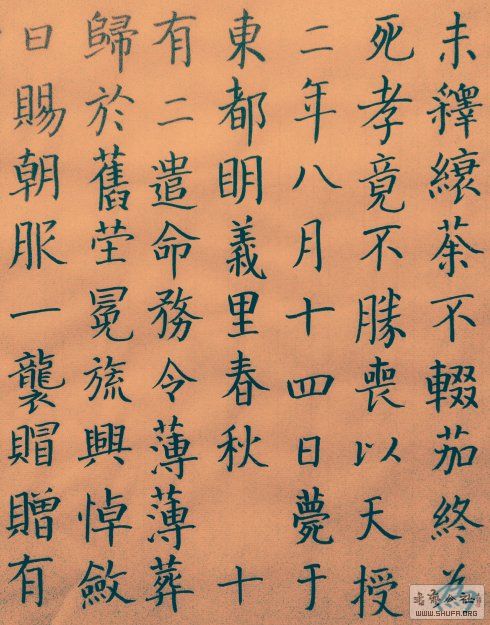 未釋縗荼不輟茹終為
死孝竟不勝喪以天授
二年八月十四日薨于
東都明義里春秋 十
有二遣命務令薄薄葬
歸於舊塋冕旒興悼斂
日賜朝服一襲賵贈有
WWW.SHUFA.ORG